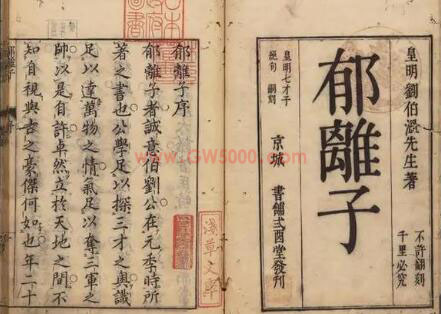 皇明劉伯溫先生著
不許翻刻
千里必究
郁離子
皇明七才子
絕句 嗣刻
京城 書舖弍酉堂發刊
郁離子序
郁離子者誠意伯劉公在元季時所
著之書也公學足以探三才之奧識
足以達萬物之情氣足以奪三軍之
帥以是自許卓然立於天地之間不
知自視與古之豪傑何如也年二十
淺草文庫
www.GW5000.com